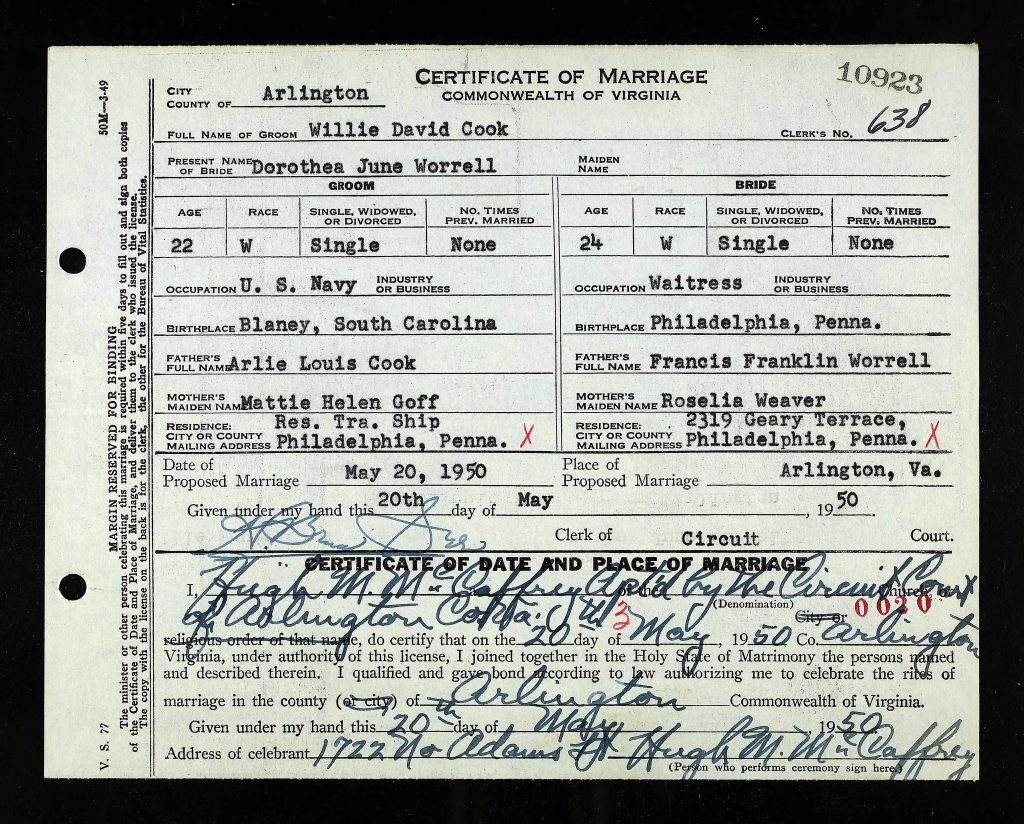 CERTIFICATE OF MARRIAGE
COMMONWEALTH OF VIRGINIA
10923
CITY
COUNTY OF Arlington
FULL NAME OF GROOM Willie David Cook
CLERK'S NO. 638
PRESENT NAME OF BRIDE Dorothea June Worrell
MAIDEN NAME
GROOM
BRIDE
AGE RACE SINGLE, WIDOWED, OR DIVORCED NO. TIMES PREV. MARRIED AGE RACE SINGLE, WIDOWED, OR DIVORCED NO. TIMES PREV. MARRIED
22 W Single None 24 W Single None
OCCUPATION U. S. Navy INDUSTRY OR BUSINESS
OCCUPATION Waitress INDUSTRY OR BUSINESS
BIRTHPLACE Blaney, South Carolina
BIRTHPLACE Philadelphia, Penna.
FATHER'S FULL NAME Arlie Louis Cook
FATHER'S FULL NAME Francis Franklin Worrell
MOTHER'S MAIDEN NAME Mattie Helen Goff
MOTHER'S MAIDEN NAME Roselia Weaver
RESIDENCE: Res. Tra. Ship
CITY OR COUNTY
MAILING ADDRESS Philadelphia, Penna. X
RESIDENCE: 2319 Geary Terrace,
CITY OR COUNTY
MAILING ADDRESS Philadelphia, Penna. X
Date of Proposed Marriage May 20, 1950
Place of Proposed Marriage Arlington, Va.
Given under my hand this 20th day of May, 1950
Clerk of Circuit Court.
CERTIFICATE OF DATE AND PLACE OF MARRIAGE
I, Hugh M. McCaffrey of the by the Circuit Court Church, or
(Denomination)
of Arlington Co. Va. 3 City or 0020
religious order of that name, do certify that on the 20 day of May 1950 Co. Arlington
Virginia, under authority of this license, I joined together in the Holy State of Matrimony the persons named
and described therein. I qualified and gave bond according to law authorizing me to celebrate the rites of
marriage in the county (or city) of Arlington Commonwealth of Virginia.
Given under my hand this 20th day of May, 1950.
Address of celebrant 1722 No Adams St Hugh M. McCaffrey
(Person who performs ceremony sign here.)
V. S. 77
MARGIN RESERVED FOR BINDING
50M—3-49
The minister or other person celebrating this marriage is required within five days to fill out and sign both copies
of the Certificate of Date and Place of Marriage, and deliver them to the clerk who issued the license.
The copy with the license on the back is for the clerk, the other for the Bureau of Vital Statistics.